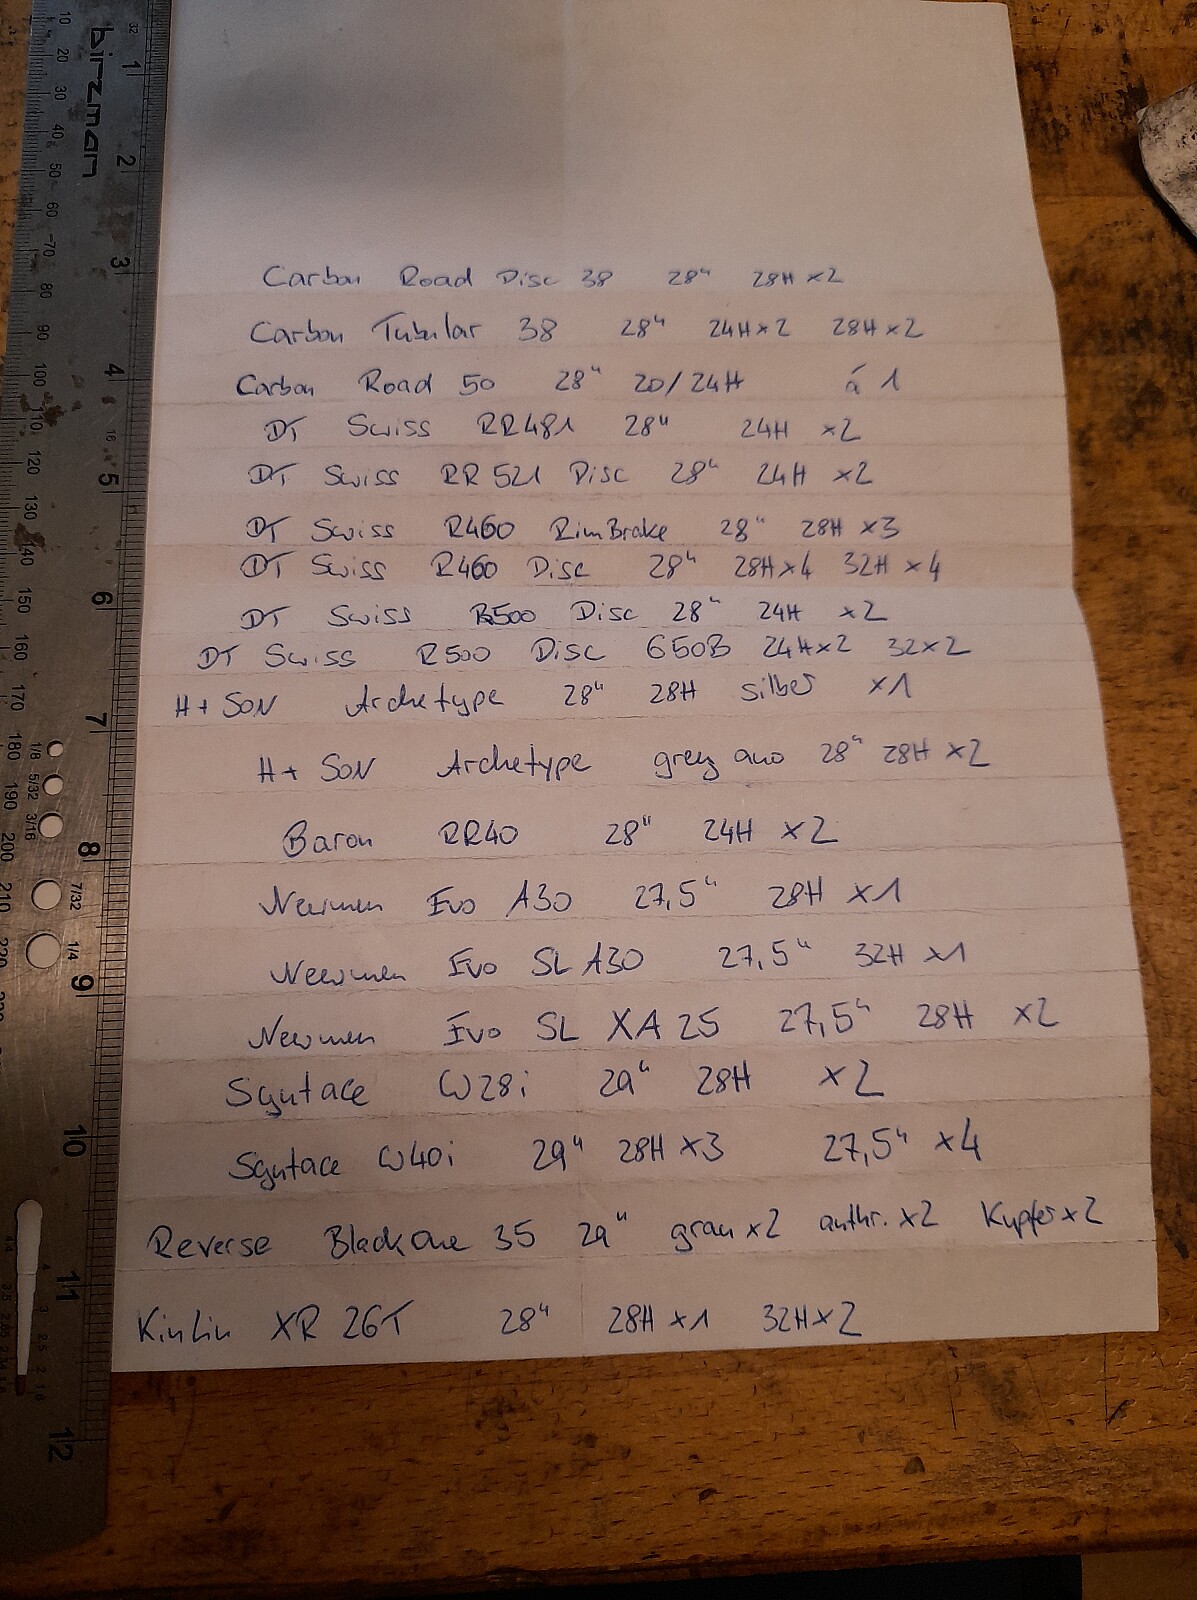 birzman
Carbon Road Disc 38 28" 28H x2
Carbon Tubular 38 28" 24H x2 28H x2
Carbon Road 50 28" 20/24H á 1
DT Swiss RR481 28" 24H x2
DT Swiss RR 521 Disc 28" 24H x2
DT Swiss R460 RimBrake 28" 28H x3
DT Swiss R460 Disc 28" 28H x4 32H x4
DT Swiss R500 Disc 28" 24H x2
DT Swiss R500 Disc 650B 24H x2 32 x2
H + SON Archetype 28" 28H silber x1
H + SON Archetype grey ano 28" 28H x2
Baron RR40 28" 24H x2
Newmen Evo A30 27,5" 28H x1
Newmen Evo SL A30 27,5" 32H x1
Newmen Evo SL XA 25 27,5" 28H x2
Syntace W28i 29" 28H x2
Syntace W40i 29" 28H x3 27,5" x4
Reverse Black One 35 29" grau x2 anthr. x2 Kupfer x2
KinLin XR 26T 28" 28H x1 32H x2